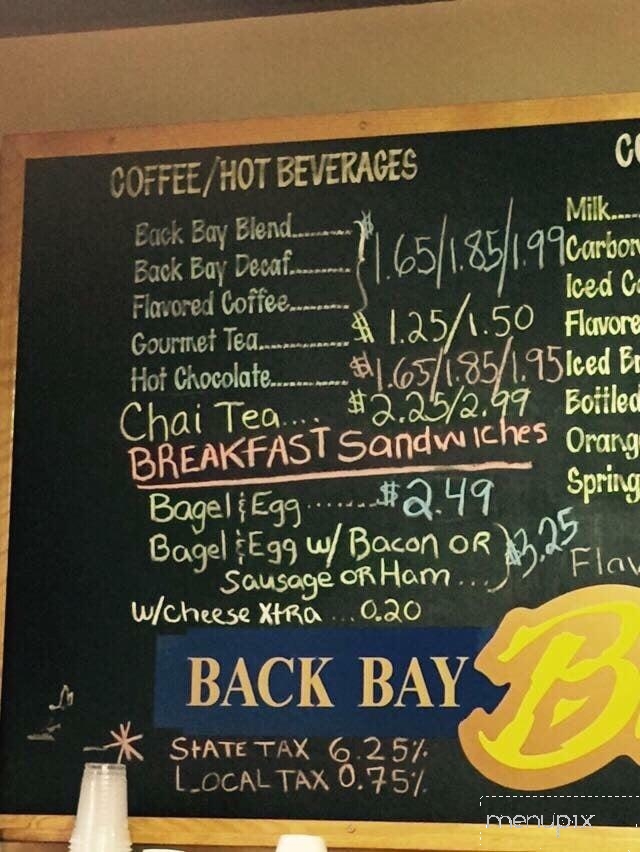 COFFEE/HOT BEVERAGES
Back Bay Blend........
Back Bay Decaf........ $1.65/1.85/1.99
Flavored Coffee........
Gourmet Tea............ $1.25/1.50
Hot Chocolate.......... $1.65/1.85/1.95
Chai Tea.... $2.25/2.99
BREAKFAST Sandwiches
Bagel & Egg........ $2.49
Bagel & Egg w/ Bacon OR
Sausage OR Ham... $3.25
w/cheese XtRa ...0.20
BACK BAY
STATE TAX 6.25%
LOCAL TAX 0.75%
Milk....
Iced
Iced
menupix